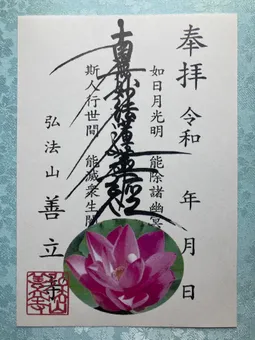 奉拝 令和 年 月 日
如日月光明 能除諸幽冥
南無妙法蓮華經
斯人行世間 能滅衆生闇
弘法山 善立寺